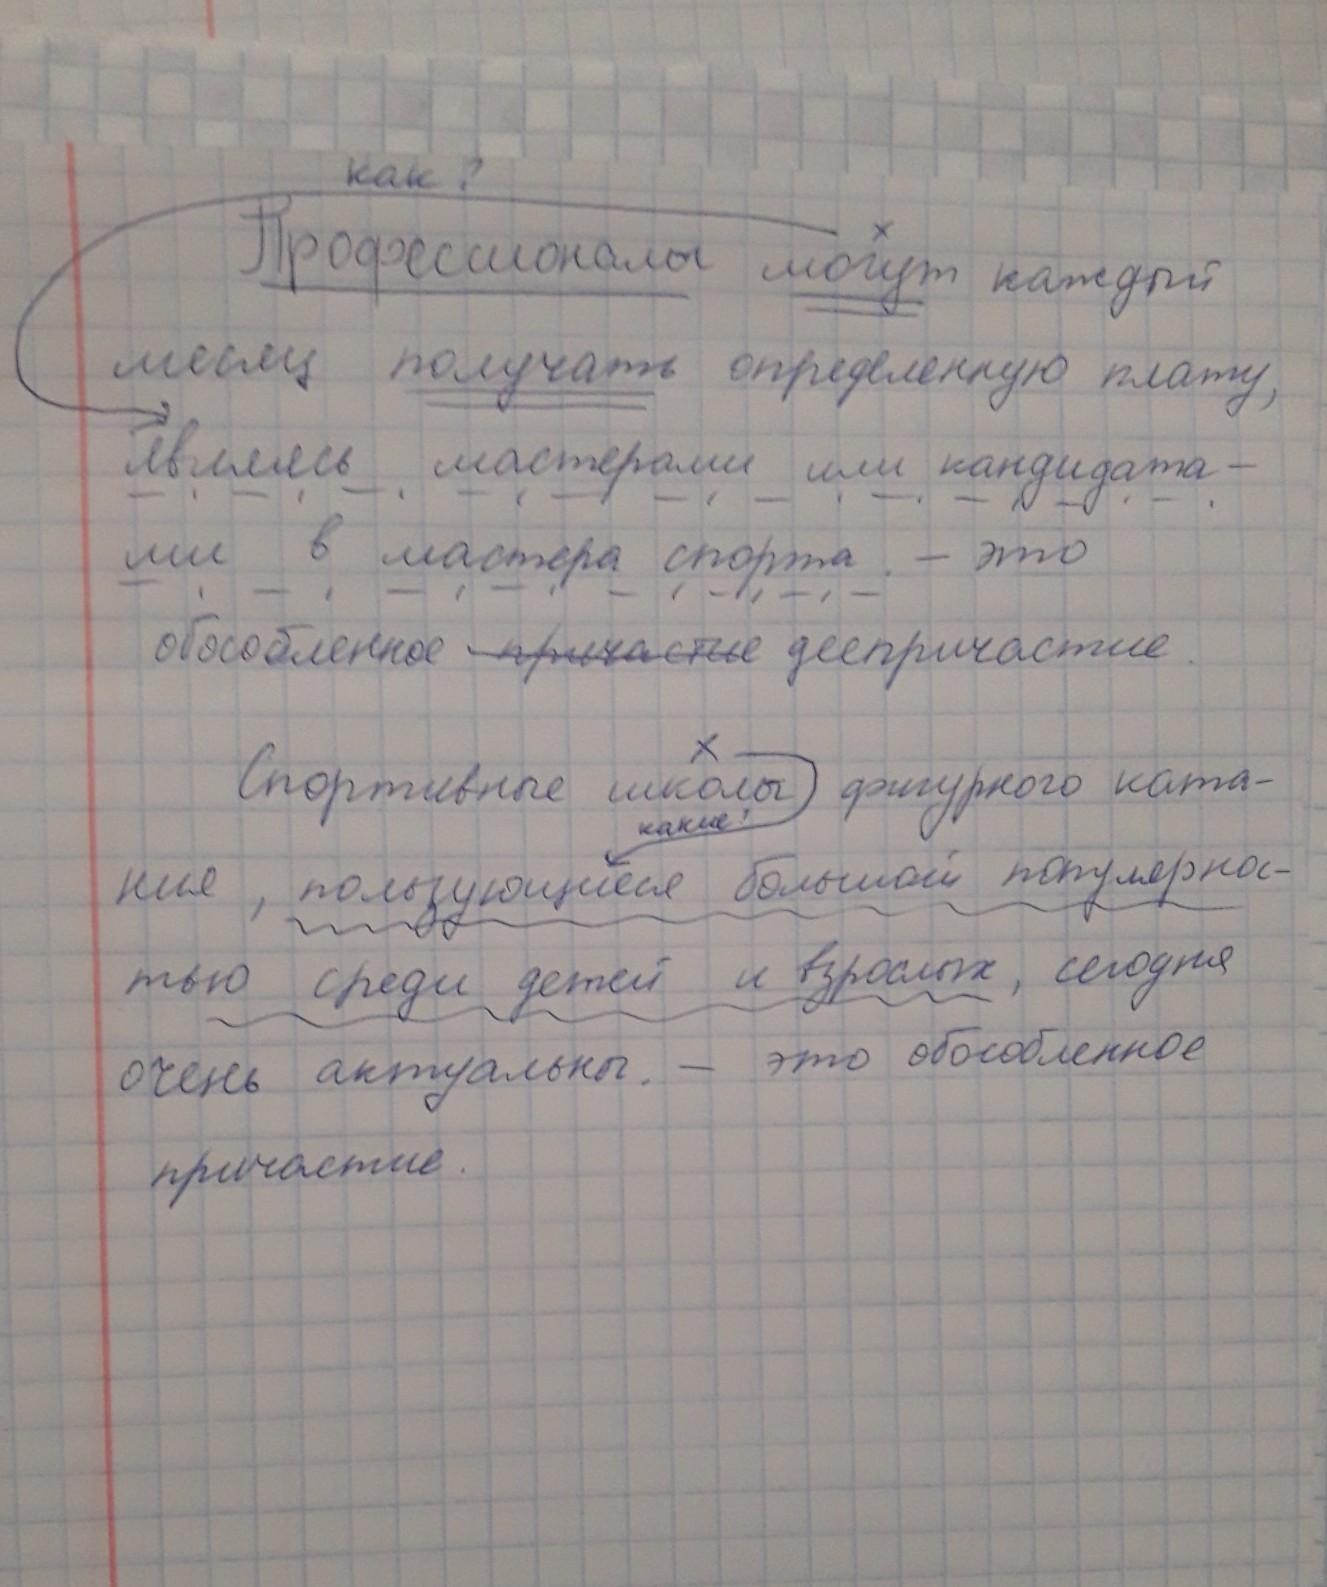 как?
х
Профессионалы могут каждый
месяц получать определенную плату,
являясь мастерами или кандидата-
ми в мастера спорта. - это
обособленное причастие деепричастие.
х
Спортивные школы фигурного ката-
какие?
ния, пользующиеся большой популярнос-
тью среди детей и взрослых, сегодня
очень актуальны. - это обособленное
причастие.